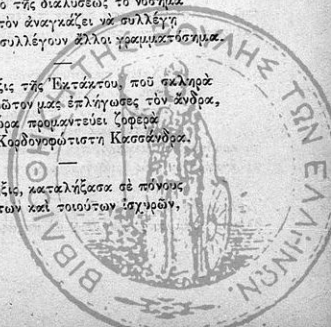 τῆς διαλύσεως τὸ νόσημα
τὸν ἀναγκάζει νὰ συλλέγῃ
συλλέγουν ἄλλοι γραμματόσημα.
τῆς Ἐκτάκτου, ποῦ σκληρὰ
μας ἐπλήγωσες τὸν ἄνδρα,
προμαντεύει ζοφερὰ
Κορδονοφώτιστη Κασσάνδρα.
καταλήξασα σὲ πόνους
καὶ τοιούτων ἰσχυρῶν,
ΒΙΒΛΙΟΘΗΚΗ ΤΗΣ ΒΟΥΛΗΣ ΤΩΝ ΕΛΛΗΝΩΝ